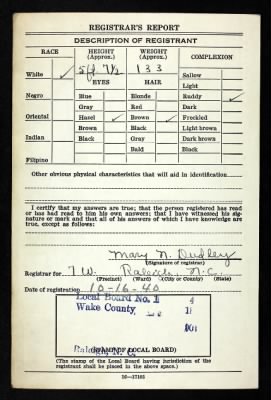 REGISTRAR'S REPORT
DESCRIPTION OF REGISTRANT
RACE HEIGHT (Approx.) WEIGHT (Approx.) COMPLEXION
White ✓ 5 ft 7½ 133 Sallow
EYES HAIR Light
Negro Blue Blonde Ruddy ✓
Gray Red Dark
Oriental Hazel ✓ Brown ✓ Freckled
Brown Black Light brown
Indian Black Gray Dark brown
Bald Black
Filipino
Other obvious physical characteristics that will aid in identification
I certify that my answers are true; that the person registered has read
or has had read to him his own answers; that I have witnessed his sig-
nature or mark and that all of his answers of which I have knowledge are
true, except as follows:
Mary N. Dudley
(Signature of registrar)
Registrar for T.W. Raleigh, N.C.
(Precinct) (Ward) (City or County) (State)
Date of registration 10-16-40
Local Board No. 1 4
Wake County, 18
Raleigh, N. C.
(STAMP OF LOCAL BOARD)
(The stamp of the Local Board having jurisdiction of the
registrant shall be placed in the above space.)
16—17105